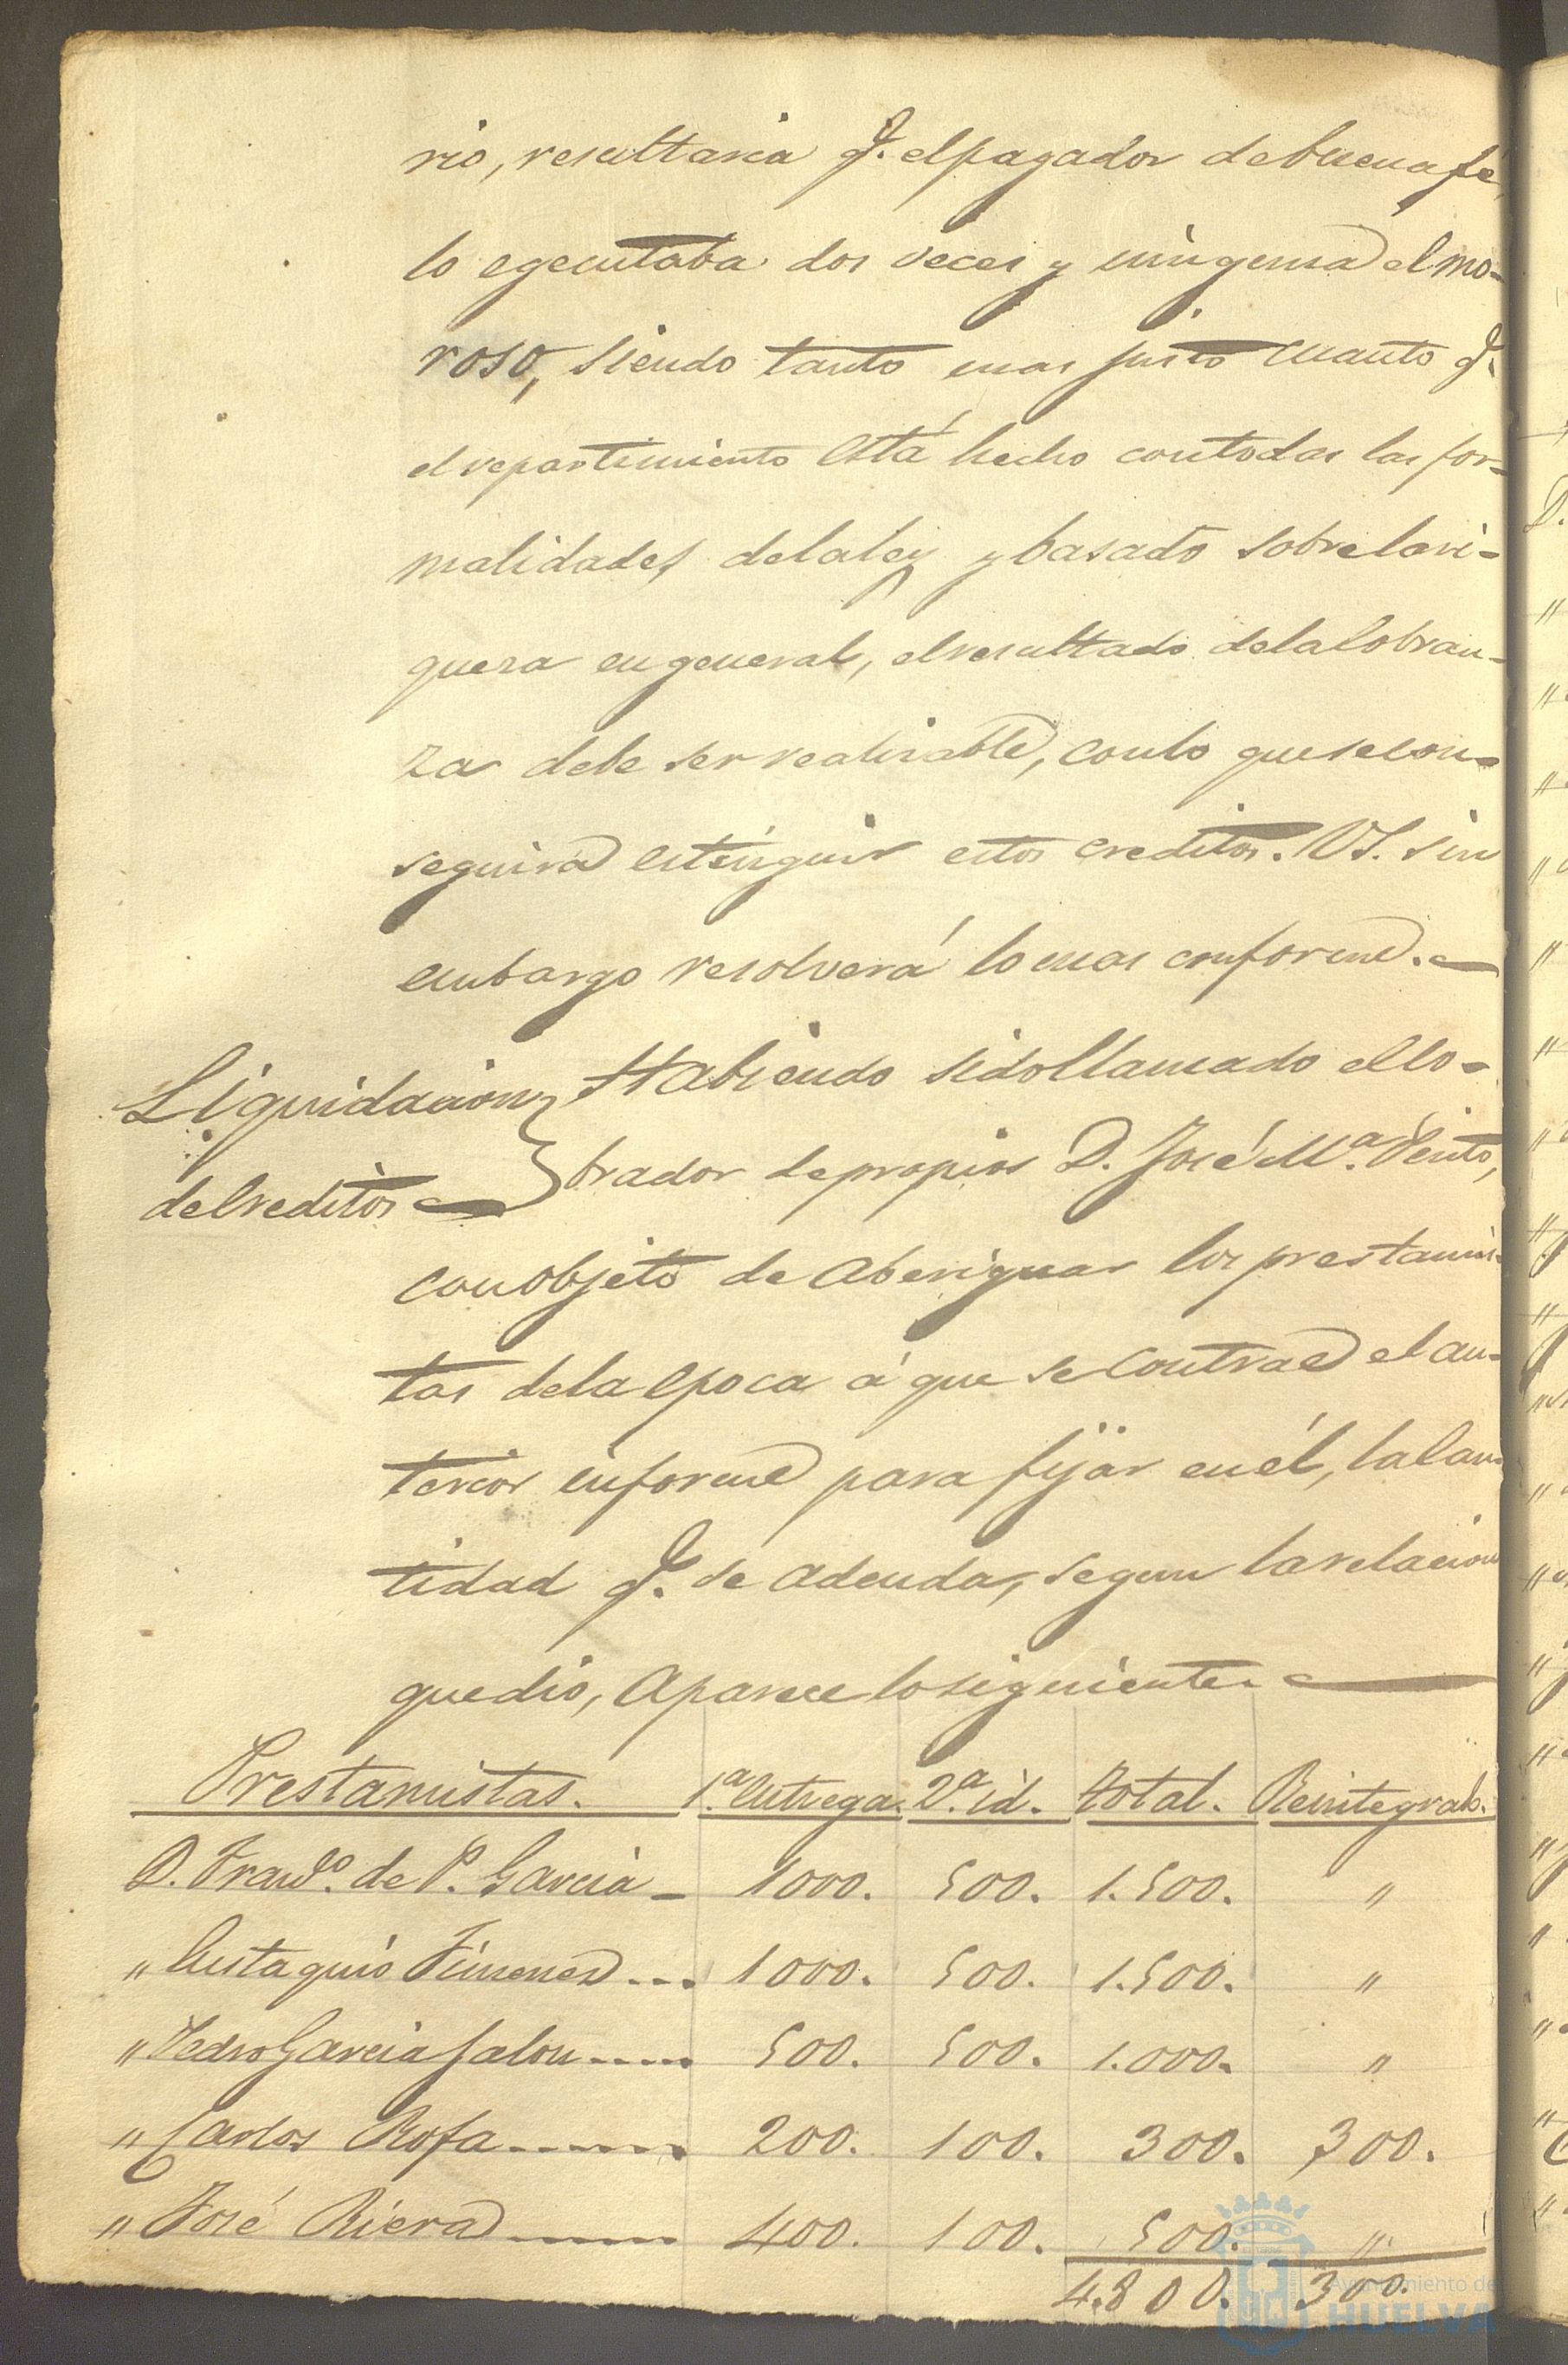 rio, resultaria q.e el pagador de buena fé,
lo egecutaba dos veces y ninguna el mo-
roso, siendo tanto mas justo cuanto q.e
el repartimiento está hecho con todas las for-
malidades de la ley y basado sobre la ri-
queza en general, el resultado de la cobran-
za debe ser realizable, con lo que se con-
seguirá estinguir estos creditos. VS. sin
embargo resolverá lo mas conforme.
Liquidacion
de creditos
Habiendo sido llamado el co-
brador de propios D. José M.a Pinto,
con objeto de aberiguar los prestamis-
tas de la epoca á que se contrae el an-
terior informe para fijar en él, la can-
tidad q.e se adeuda, segun la relacion
que dio, aparece lo siguiente.
Prestamistas. 1.a Entrega. 2.a id. Total. Reintegrado.
D. Fran.co de P. Garcia 1000. 500. 1.500. "
" Eustaquio Jimenez 1000. 500. 1.500. "
" Pedro Garcia Jalon 500. 500. 1.000. "
" Carlos Rofa 200. 100. 300. 300.
" José Riera 400. 100. 500. "
4.800. 300.
Ayuntamiento de
HUELVA